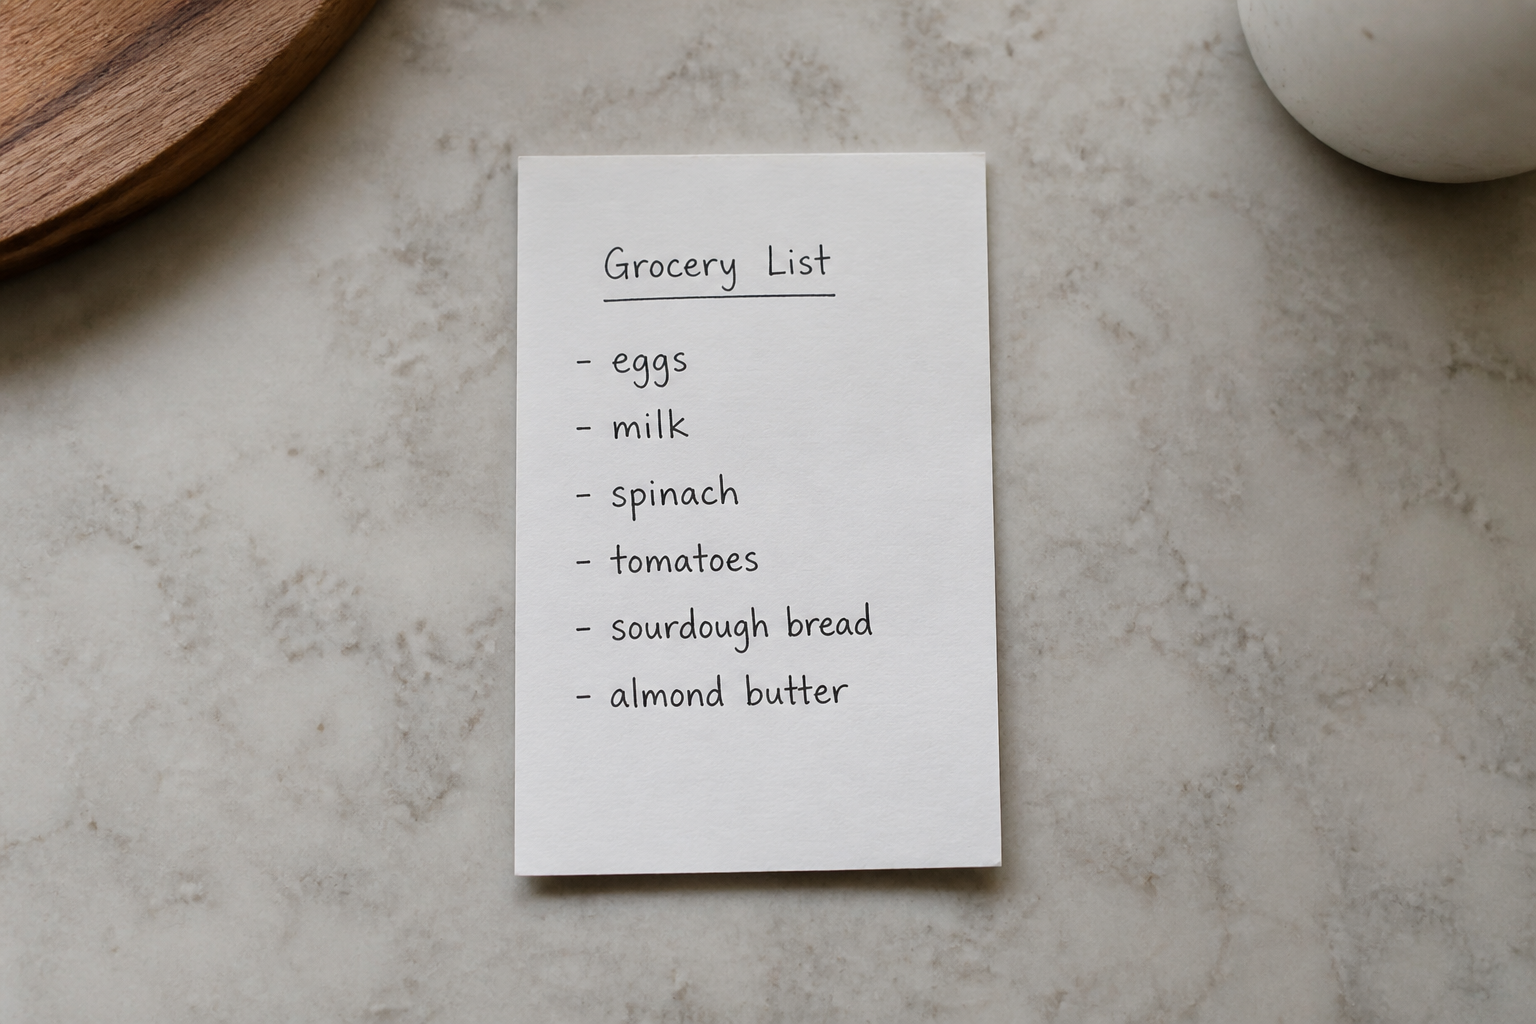 Grocery List
- eggs
- milk
- spinach
- tomatoes
- sourdough bread
- almond butter